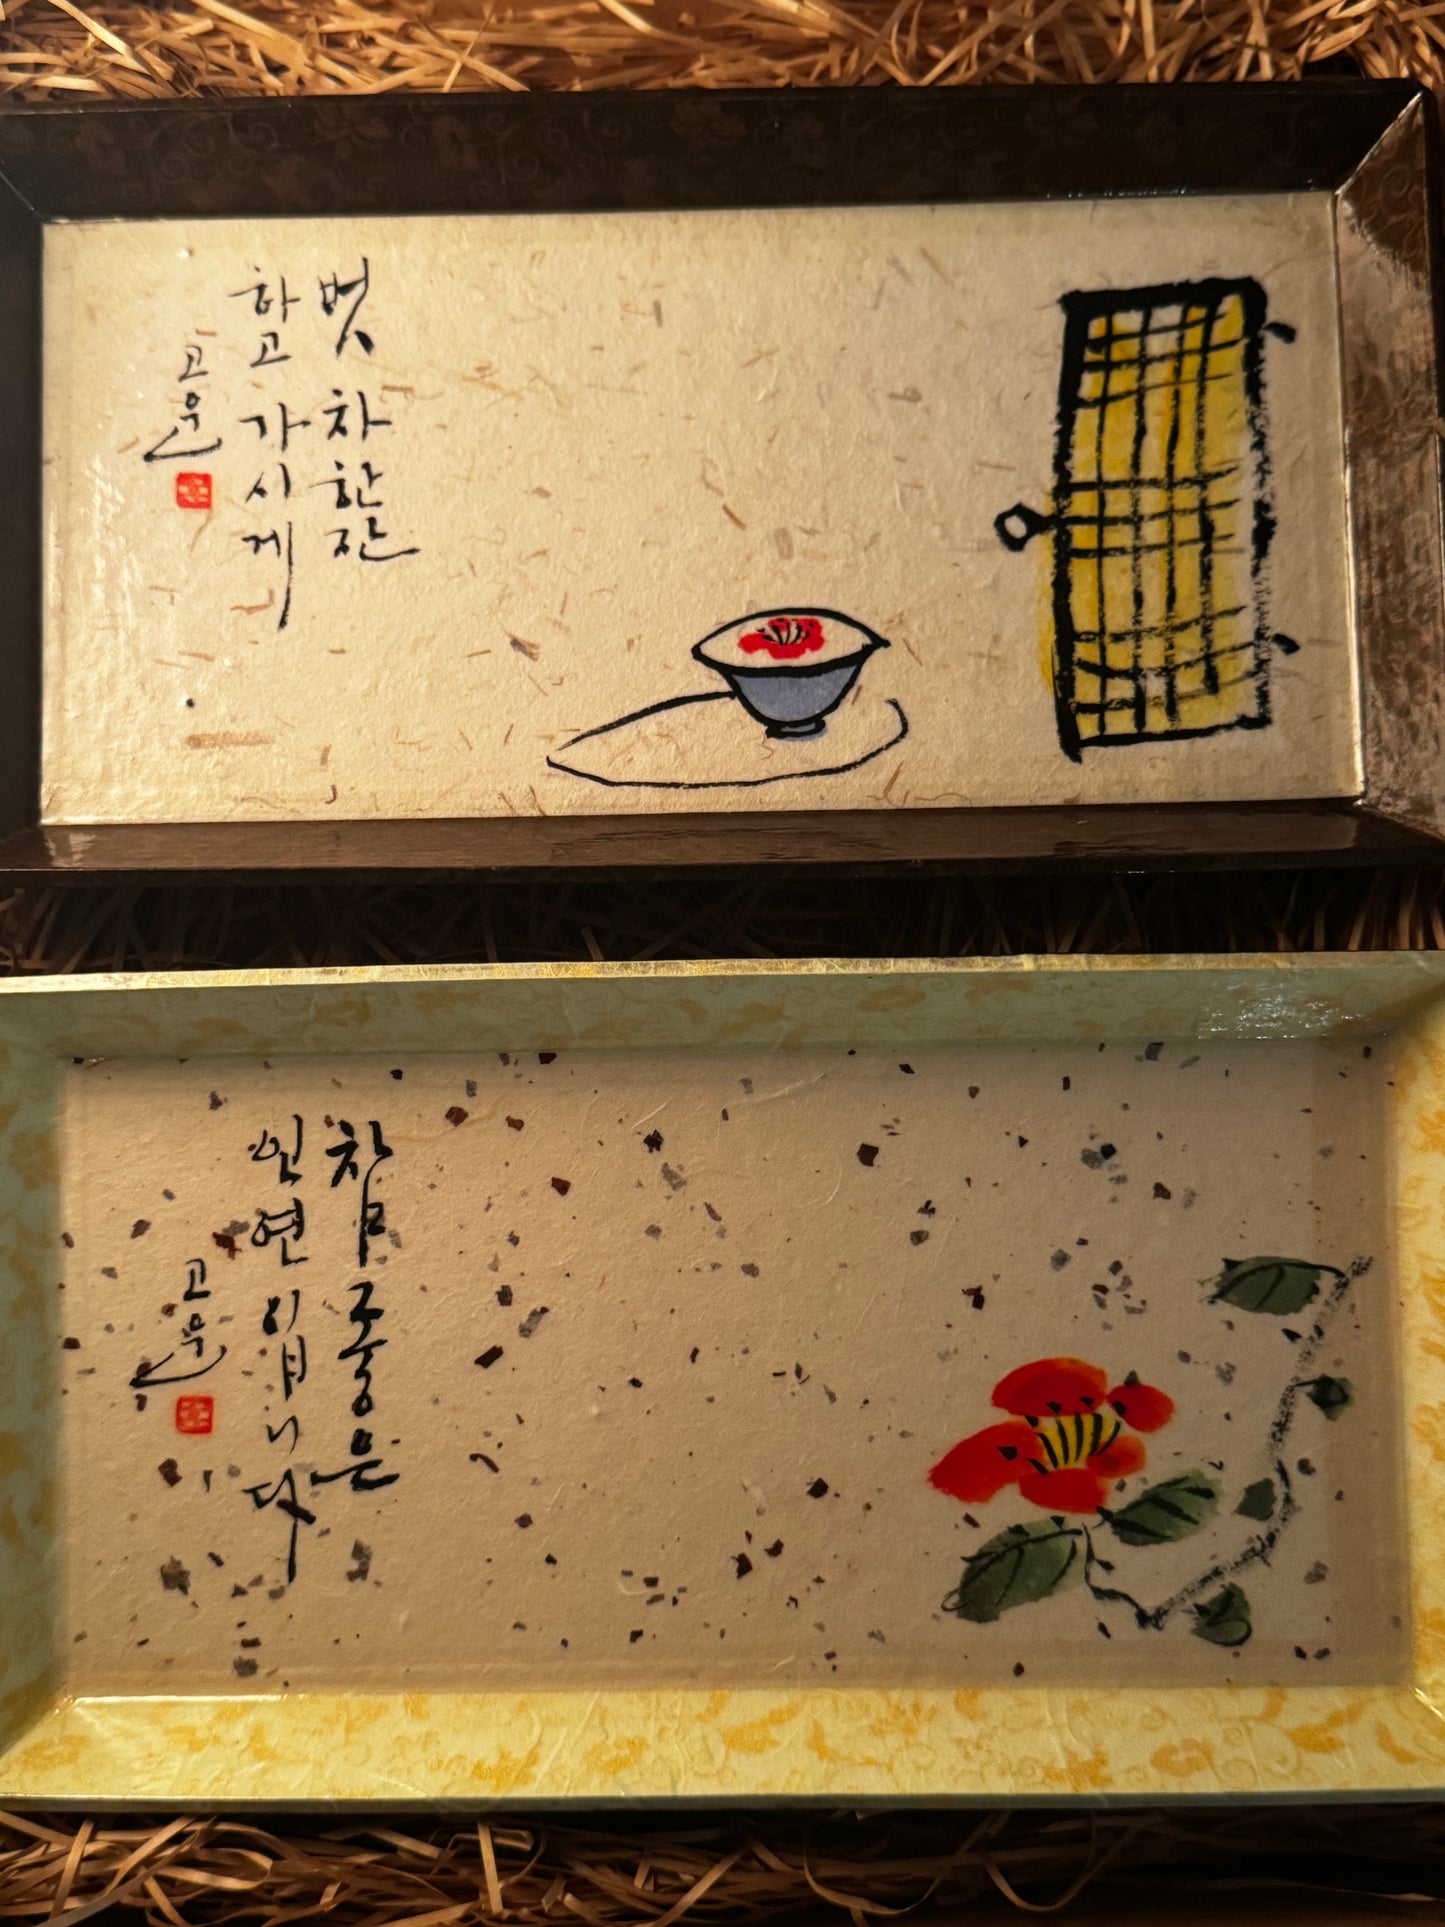 벗 차 한 잔
하고 가시게
고운
참 좋은
인연 입니다
고운